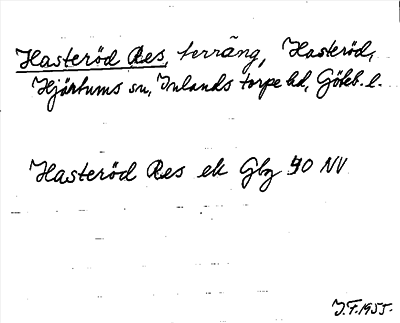 Hasteröd Res, terräng, Hasteröd,
Hjärtums sn, Inlands torpe hd, Göteb. l.
Hasteröd Res ek Gbg 40 NV
J.F. 1955.